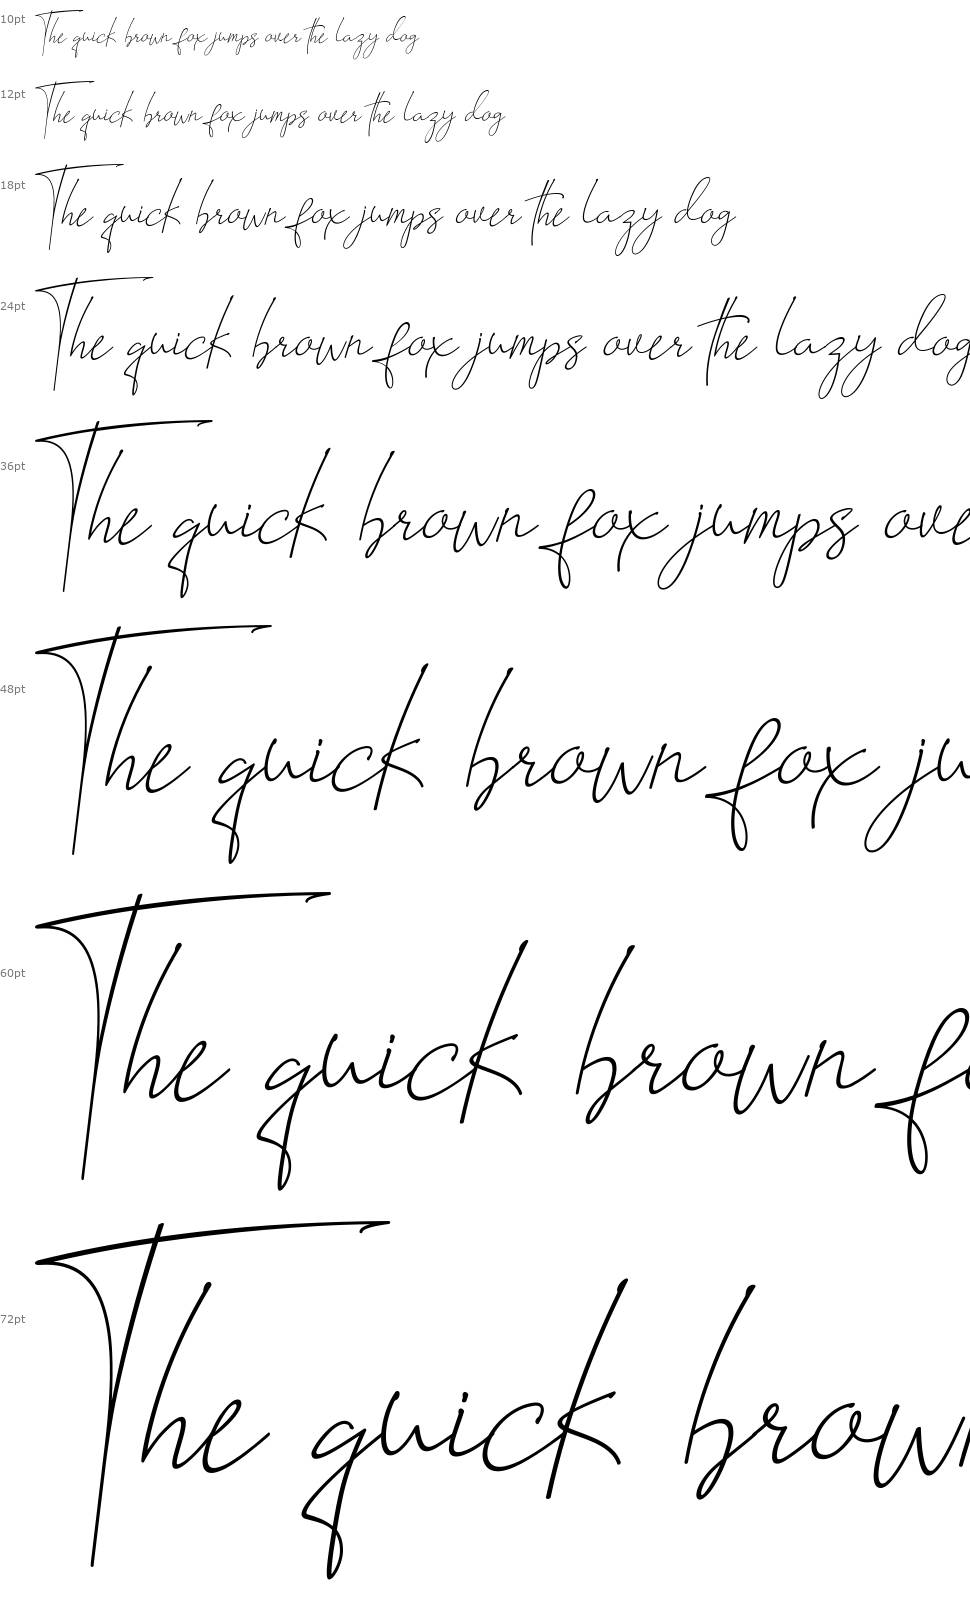 10pt The quick brown fox jumps over the lazy dog
12pt The quick brown fox jumps over the lazy dog
18pt The quick brown fox jumps over the lazy dog
24pt The quick brown fox jumps over the lazy dog
36pt The quick brown fox jumps ove
48pt The quick brown fox ju
60pt The quick brown fo
72pt The quick brown